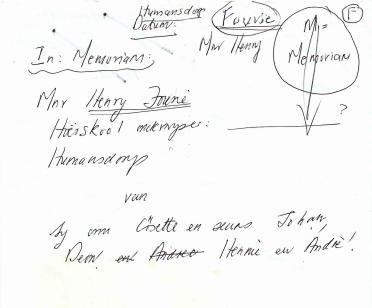 Humansdorp
Datum:
Fourie
F
Mnr Henry
M =
Memoriam
In: Memoriam:
Mnr Henry Fourie
?
Hoërskool
Humansdorp
van
Sy Cosette en seuns Johan
Deon en Andreo Hennie en André!